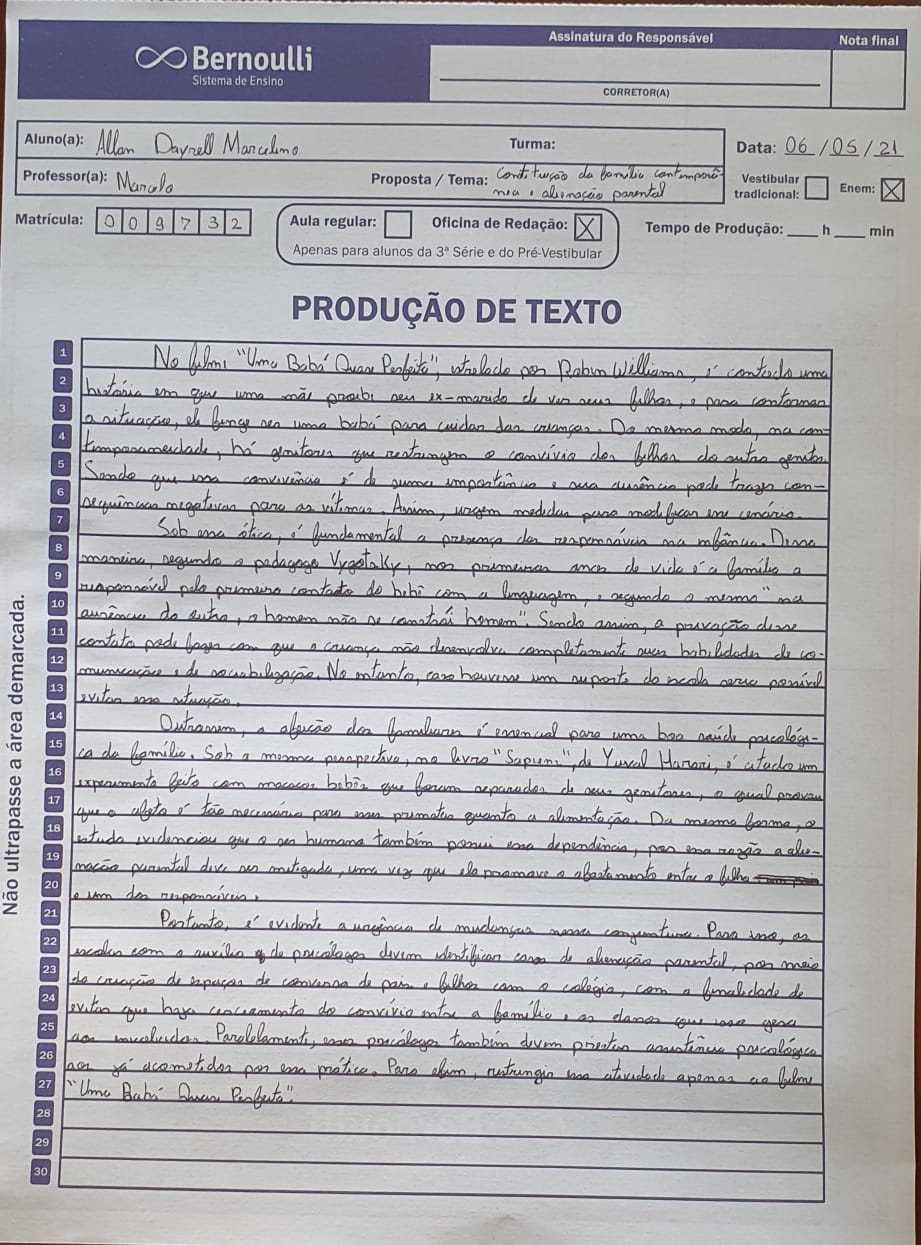 Bernoulli
Sistema de Ensino
Assinatura do Responsável
Nota final
CORRETOR(A)
Aluno(a): Allan Dayrell Marcelino
Turma:
Data: 06/05/21
Professor(a): Marcelo
Proposta / Tema: Constituição da família contemporâ-
nea e alienação parental
Vestibular tradicional:
Enem: X
Matrícula: 009732
Aula regular:
Oficina de Redação: X
Apenas para alunos da 3ª Série e do Pré-Vestibular
Tempo de Produção: ____ h ____ min
PRODUÇÃO DE TEXTO
Não ultrapasse a área demarcada.
1 No filme "Uma Babá Quase Perfeita", estrelado por Robin Williams, é contado uma
2 história em que uma mãe proíbe seu ex-marido de ver seus filhos, e para contornar
3 a situação, ele finge ser uma babá para cuidar das crianças. Do mesmo modo, na con-
4 temporaneidade, há genitores que restringem o convívio dos filhos do outro genitor.
5 Sendo que essa convivência é de suma importância e sua ausência pode trazer con-
6 sequências negativas para as vítimas. Assim, urgem medidas para modificar esse cenário.
7 Sob essa ótica, é fundamental a presença dos responsáveis na infância. Dessa
8 maneira, segundo o pedagogo Vygotsky, nos primeiros anos de vida é a família a
9 responsável pelo primeiro contato do bebê com a linguagem, e segundo o mesmo "na
10 ausência do outro, o homem não se constrói homem". Sendo assim, a privação desse
11 contato pode fazer com que a criança não desenvolva completamente suas habilidades de co-
12 municação e de sociabilização. No entanto, caso houvesse um suporte da escola seria possível
13 evitar essa situação.
14 Outrossim, a afeição dos familiares é essencial para uma boa saúde psicológi-
15 ca da família. Sob a mesma perspectiva, no livro "Sapiens", de Yuval Harari, é citado um
16 experimento feito com macacos bebês que foram separados de seus genitores, o qual provou
17 que o afeto é tão necessário para esses primatas quanto a alimentação. Da mesma forma, o
18 estudo evidenciou que o ser humano também possui essa dependência, por essa razão a alie-
19 nação parental deve ser mitigada, uma vez que ela promove o afastamento entre o filho
20 e um dos responsáveis.
21 Portanto, é evidente a urgência de mudanças nessa conjuntura. Para isso, as
22 escolas com o auxílio de psicólogos devem identificar casos de alienação parental, por meio
23 da criação de espaços de conversa de pais e filhos com o colégio, com a finalidade de
24 evitar que haja cerceamento do convívio entre a família e os danos que isso gera
25 aos envolvidos. Paralelamente, esses psicólogos também devem prestar assistência psicológica
26 aos já acometidos por essa prática. Para assim, restringir essa atividade apenas ao filme
27 "Uma Babá Quase Perfeita".
28
29
30